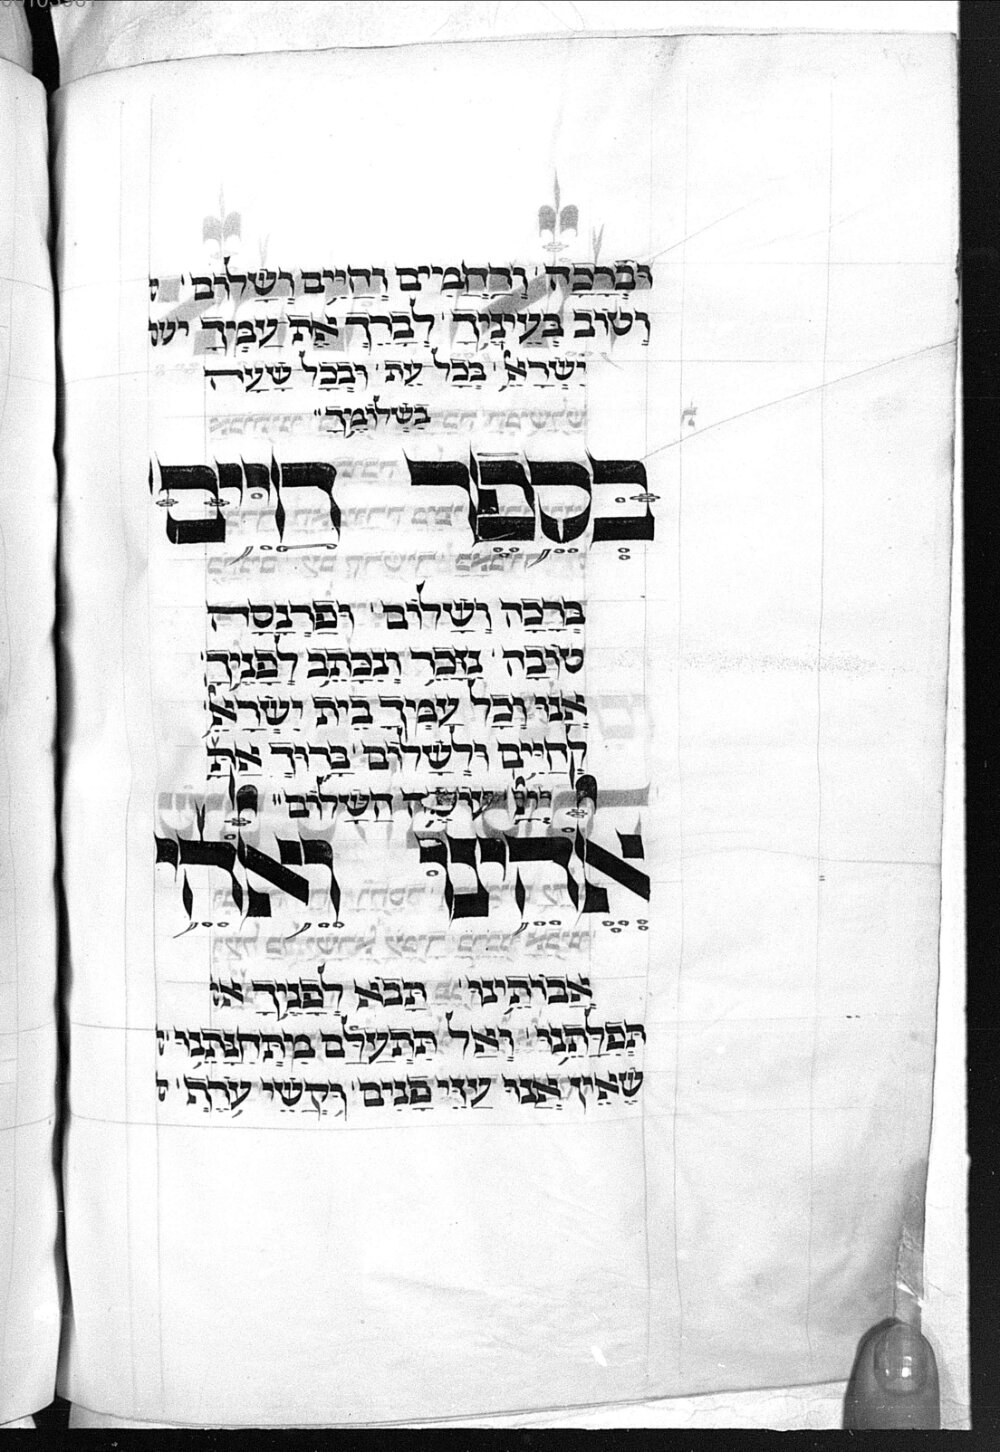 וּבְרָכָה וְרַחֲמִים וְחַיִּים וְשָׁלוֹם
וְטוֹב בְּעֵינֶיךָ לְבָרֵךְ אֶת עַמְּךָ יש
יִשְׂרָאֵ בְּכָל עֵת וּבְכָל שָׁעָה
בִּשְׁלוֹמֶךָ
בְּסֵפֶר חַיִּים
בְּרָכָה וְשָׁלוֹם וּפַרְנָסָה
טוֹבָה נִזָּכֵר וְנִכָּתֵב לְפָנֶיךָ
אָנוּ וְכָל עַמְּךָ בֵּית יִשְׂרָאֵ
לְחַיִּים וּלְשָׁלוֹם בָּרוּךְ אַתָּ
יְיָ עוֹשֶׂה הַשָּׁלוֹם
אֱלֹהֵינוּ וֵאלֹהֵי
אֲבוֹתֵינוּ תָּבֹא לְפָנֶיךָ
תְּפִלָּתֵנוּ וְאַל תִּתְעַלַּם מִתְּחִנָּתֵנוּ
שֶׁאֵין אָנוּ עַזֵּי פָנִים וּקְשֵׁי עֹרֶף